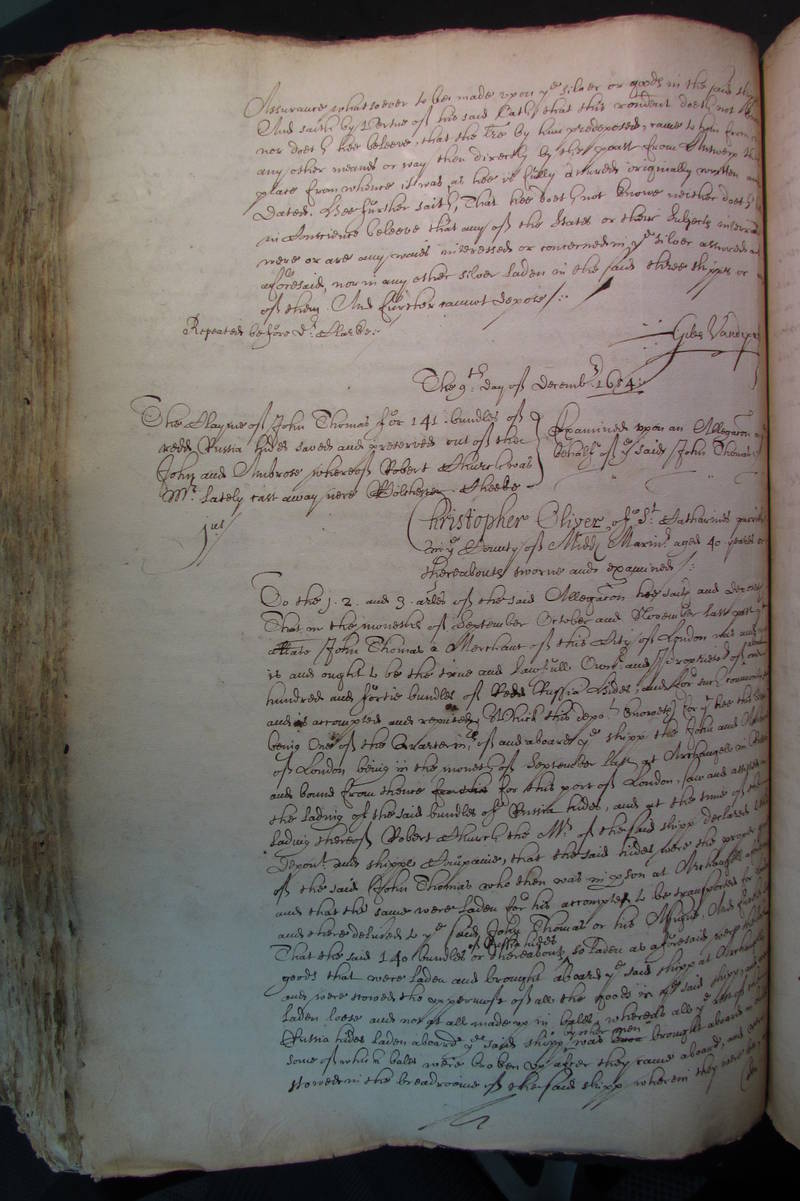 Assurance whatsoever to bee made upon ye silver or goods in the said shipp
And saith by vertue of his said Oath, that this rendent doeth not
nor doeth hee beleeve, that the lre by him predeposed, came to him from
any other meanes or way then directly by the poast from Antwerp the
place from whence it was, as hee is fully assured originally written and
dated. Hee further saith, That hee doeth not knowe neither doeth
in Conscience beleeve that any of the States or their Subjects
were or are any waies interessed or concerned in ye silver
aforesaid, nor in any other silver laden in the said three shipps or
of them. And further cannot depose /:
Repeated before Dr. Clarke:
Giles Vandeput
The 9th. day of Decembr. 1654:
The Clayme of John Thomas for 141. bundles of
redd Russia hides saved and preserved out of the
John and Ambrose whereof Robert Church was
Mr. lately cast away nere
Examined upon an Allegacon
behalfe of ye said John Thomas
jus/
Christopher Oliver, of St. Catharines parish
in ye County of Middx Marinr. aged 40. yeares or
thereabouts sworne and examined /:
To the 1. 2. and 3. arles of the said Allegacon hee saith and deposeth
That in the moneths of September October and November last past ye
arlate John Thomas a Merchant of this City of London was and
is and ought to be the true and lawfull Ownr. and Proprietor of one
hundred and fortie bundles of Redd Russia Hides, and for such commonly
and is accompted and reputed, Which this depot. knoweth for yt hee this
being One of the Quartermrs. of and aboard ye shipp the John and Ambrose
of London being in the moneth of September last at Archangel in Russia
and bound from thence for this port of London, saw and assisted in
the lading of the said bundles of Russia hides, and at the time of the
lading thereof Robert Church the Mr. of the said shipp declared to
Depont. and shipps Companie, that the said hides were the proper goods
of the said John Thomas who then was in pson at Archangell aforesaid
and that the same were laden for his accompt to be transported for
and there delivered to ye said John Thomas or his Assigns, And further
That the said 140 bundles of Russia hides or thereabouts, so laden as aforesaid were the last
goods that were laden and brought aboard ye said shipp at Archangell
and were stowed the uppermost of all the goods in ye said shipp, and were
laden loose and not at all made up in bales, whereas all ye rest of ye
Russia hides laden aboard ye said shipp by other men was brought aboard in
some of which bales were broken up after they came aboard, and
stowed in the breadroome of the said shipp wherein they were